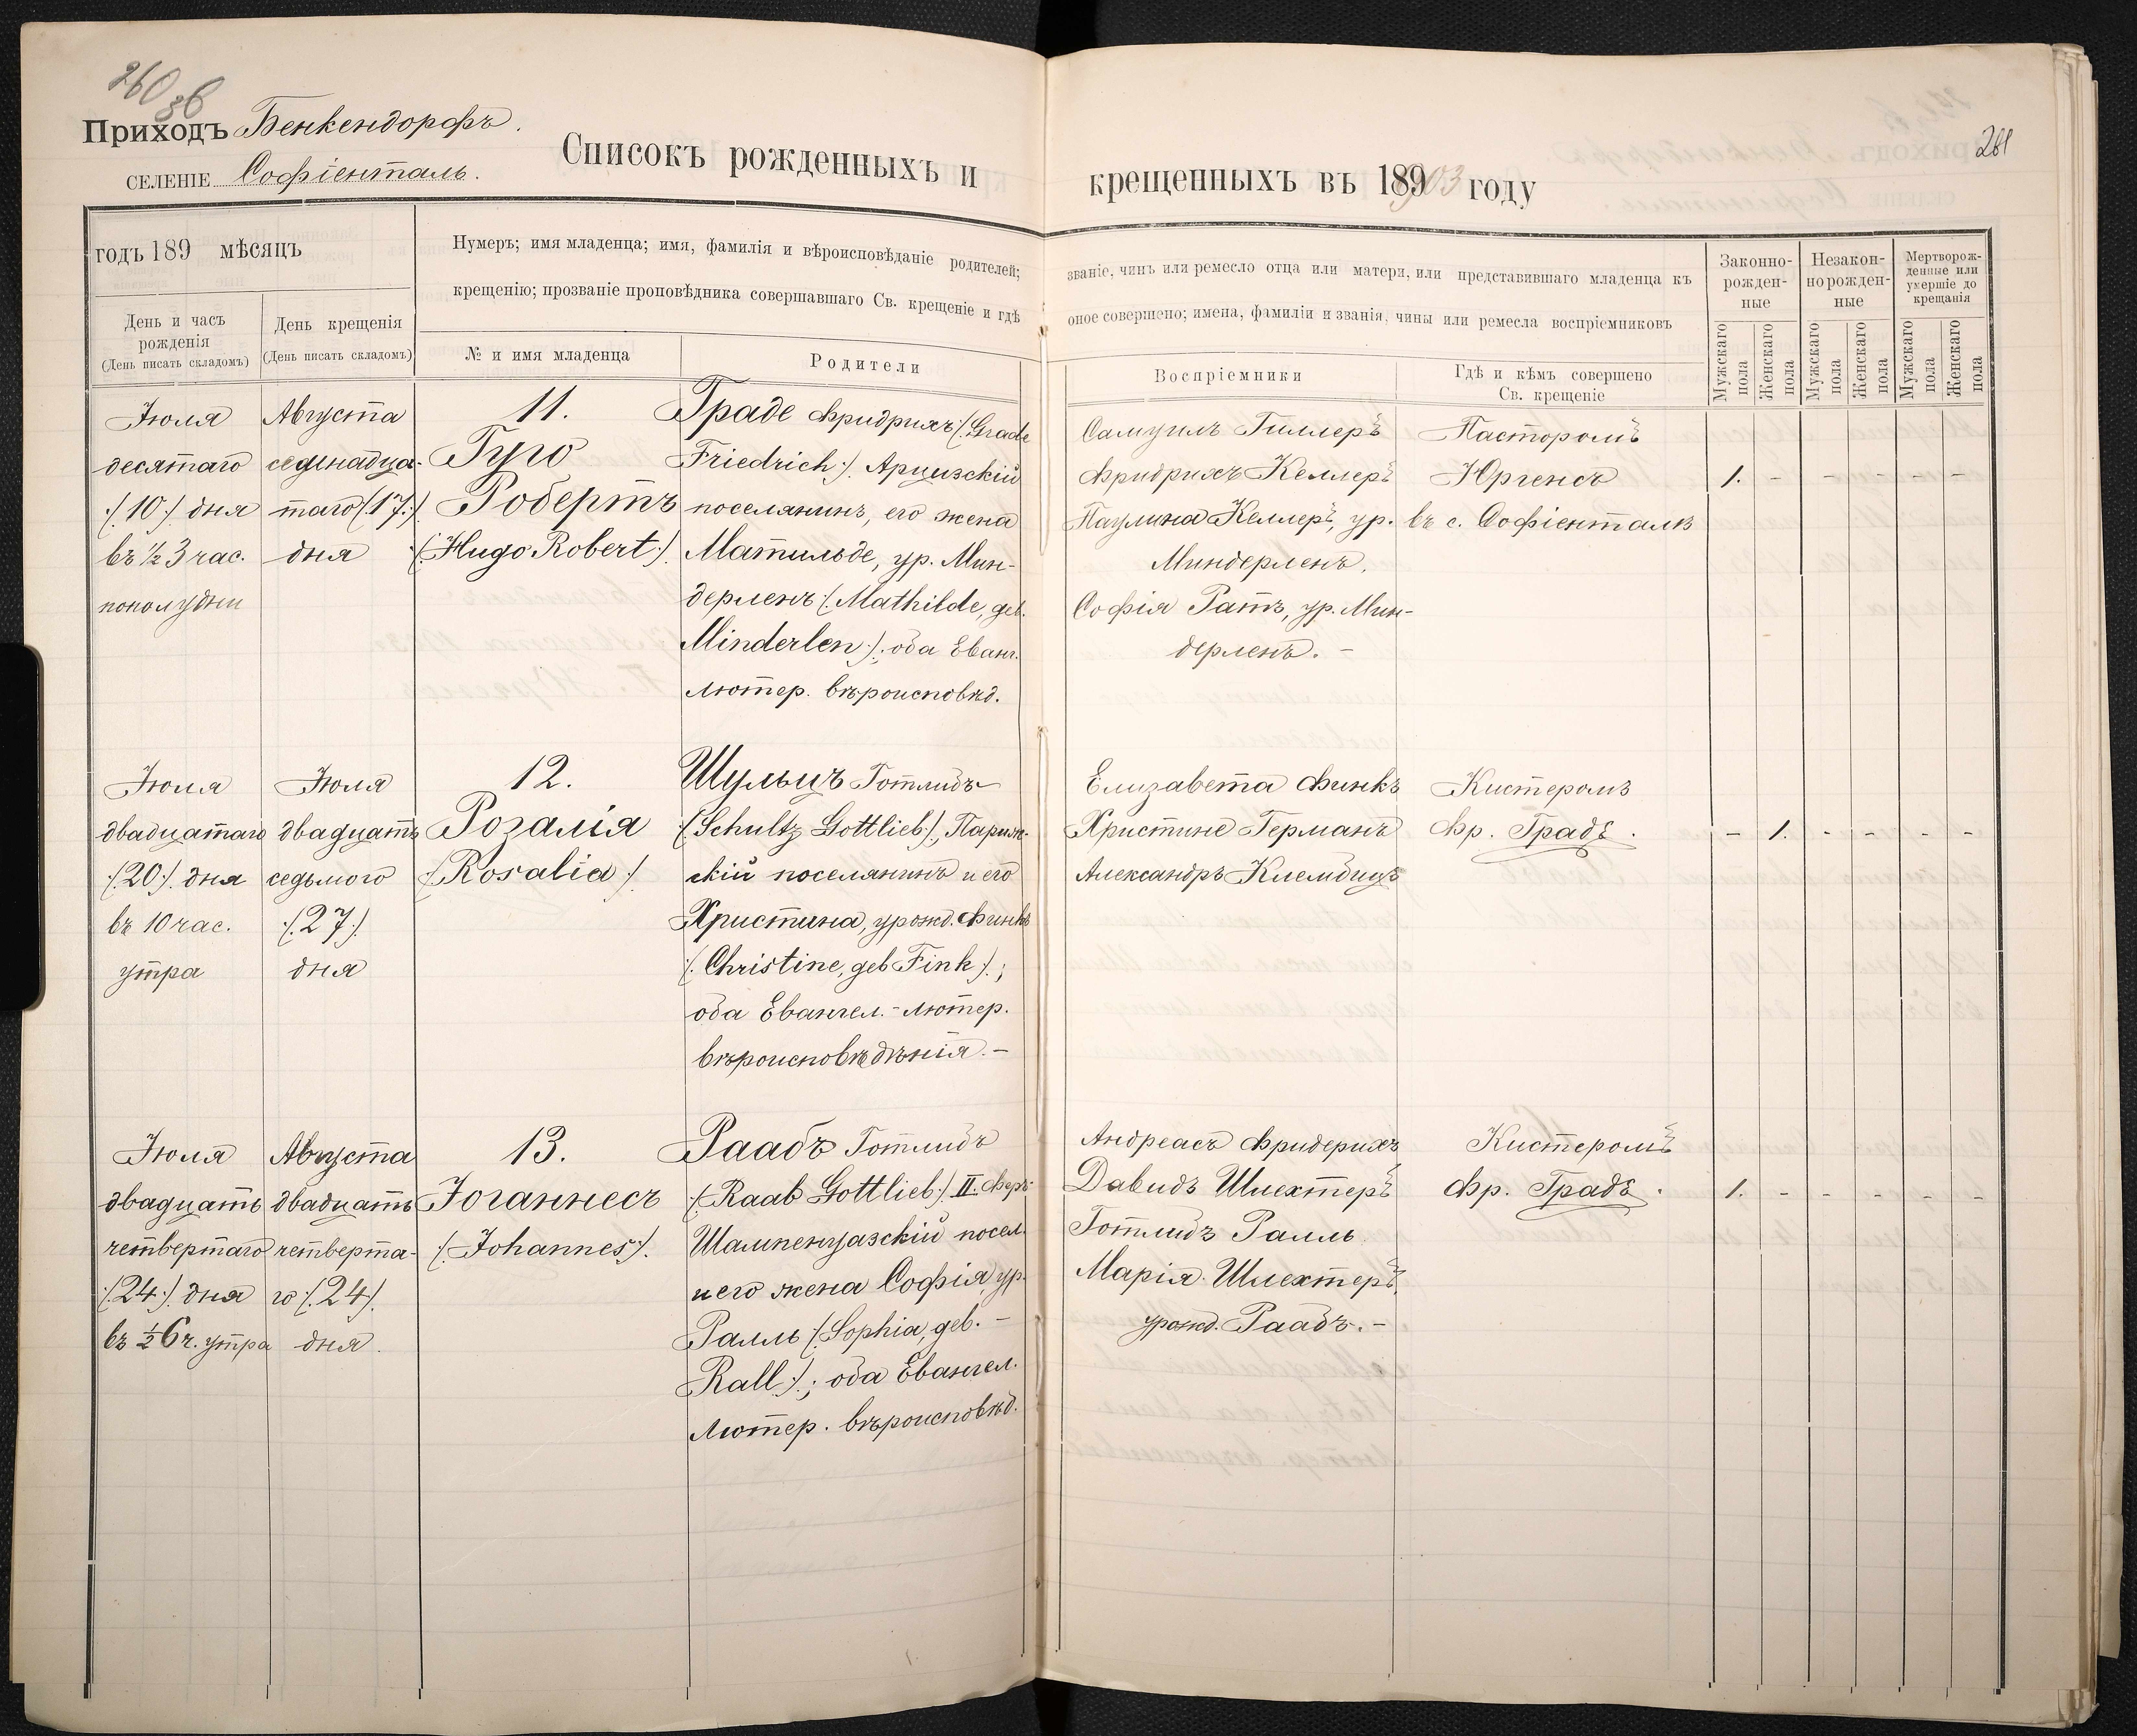 260
36
261
Приходъ Бенкендорфъ.
селеніе Софіенталь.
Списокъ рожденныхъ и крещенныхъ въ 1903 году
годъ 189 мѣсяцъ
День и часъ рожденія
(День писать складомъ)
День крещенія
(День писать складомъ)
Нумеръ; имя младенца; имя, фамилія и вѣроисповѣданіе родителей; званіе, чинъ или ремесло отца или матери, или представившаго младенца къ
крещенію; прозваніе проповѣдника совершавшаго Св. крещеніе и гдѣ оное совершено; имена, фамиліи и званія, чины или ремесла воспріемниковъ
№ и имя младенца
Родители
Воспріемники
Гдѣ и кѣмъ совершено
Св. крещеніе
Законно-
рожден-
ные
Незакон-
норожден-
ные
Мертворож-
денные или
умершіе до
крещанія
Мужскаго пола
Женскаго пола
Мужскаго пола
Женскаго пола
Мужскаго пола
Женскаго пола
Іюля
десятаго
/:10:/ дня
въ ½ 3 час.
пополудни
Августа
седенадца-
таго /:17:/
дня
11.
Гуго
Робертъ
/:Hugo Robert:/
Граде Фридрихъ /:Grade
Friedrich:/ Арцизскій
поселянинъ, его жена
Матильде, ур. Мин-
дерленъ /:Mathilde, geb.
Minderlen:/; оба Еванг.
Лютер. вѣроисповѣд.
Самуилъ Гиллеръ
Фридрихъ Келлеръ
Паулина Келлеръ, ур.
Миндерленъ.
Софія Ратъ, ур. Мин-
дерленъ. -
Пасторомъ
Юргенсъ
въ с. Софіенталѣ
1. - - - - -
Іюля
двадцатаго
/:20:/ дня
въ 10 час.
утра
Іюля
двадцать
седьмого
/:27:/
дня
12.
Розалія
/:Rosalia:/
Шульцъ Готлибъ
/:Schultz Gottlieb:/, Париж-
скій поселянинъ и его
Христина, урожд. Финкъ
/:Christine, geb Fink:/;
оба Евангел.-Лютер.
вѣроисповѣдѣнія. -
Елизавета Финкъ
Христине Германъ
Александръ Клембицъ
Кистеромъ
Фр. Граде.
- 1. - - - -
Іюля
двадцать
четвертаго
/:24:/ дня
въ ½ 6 ч. утра
Августа
двадцать
четверта-
го /:24:/
дня.
13.
Іоганнесъ
/:Johannes:/.
Раабъ Готлибъ
/:Raab Gottlieb:/ II. Фер-
Шампенуазскій посел.
и его жена Софія, ур.
Ралль /:Sophia, geb. -
Rall:/; оба Евангел.
Лютер. вѣроисповѣд.
Андреасъ Фридерихъ
Давидъ Шлехтеръ
Готлибъ Ралль
Марія Шлехтеръ,
урожд. Раабъ. -
Кистеромъ
Фр. Граде.
1. - - - - -